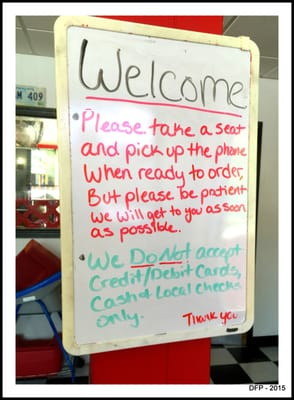 M 409
Welcome
Please take a seat
and pick up the phone
When ready to order,
But please be patient
We Will get to you as soon
as possible..
We Do Not accept
Credit/Debit Cards,
Cash & Local Checks
only.
Thank you
DFP - 2015